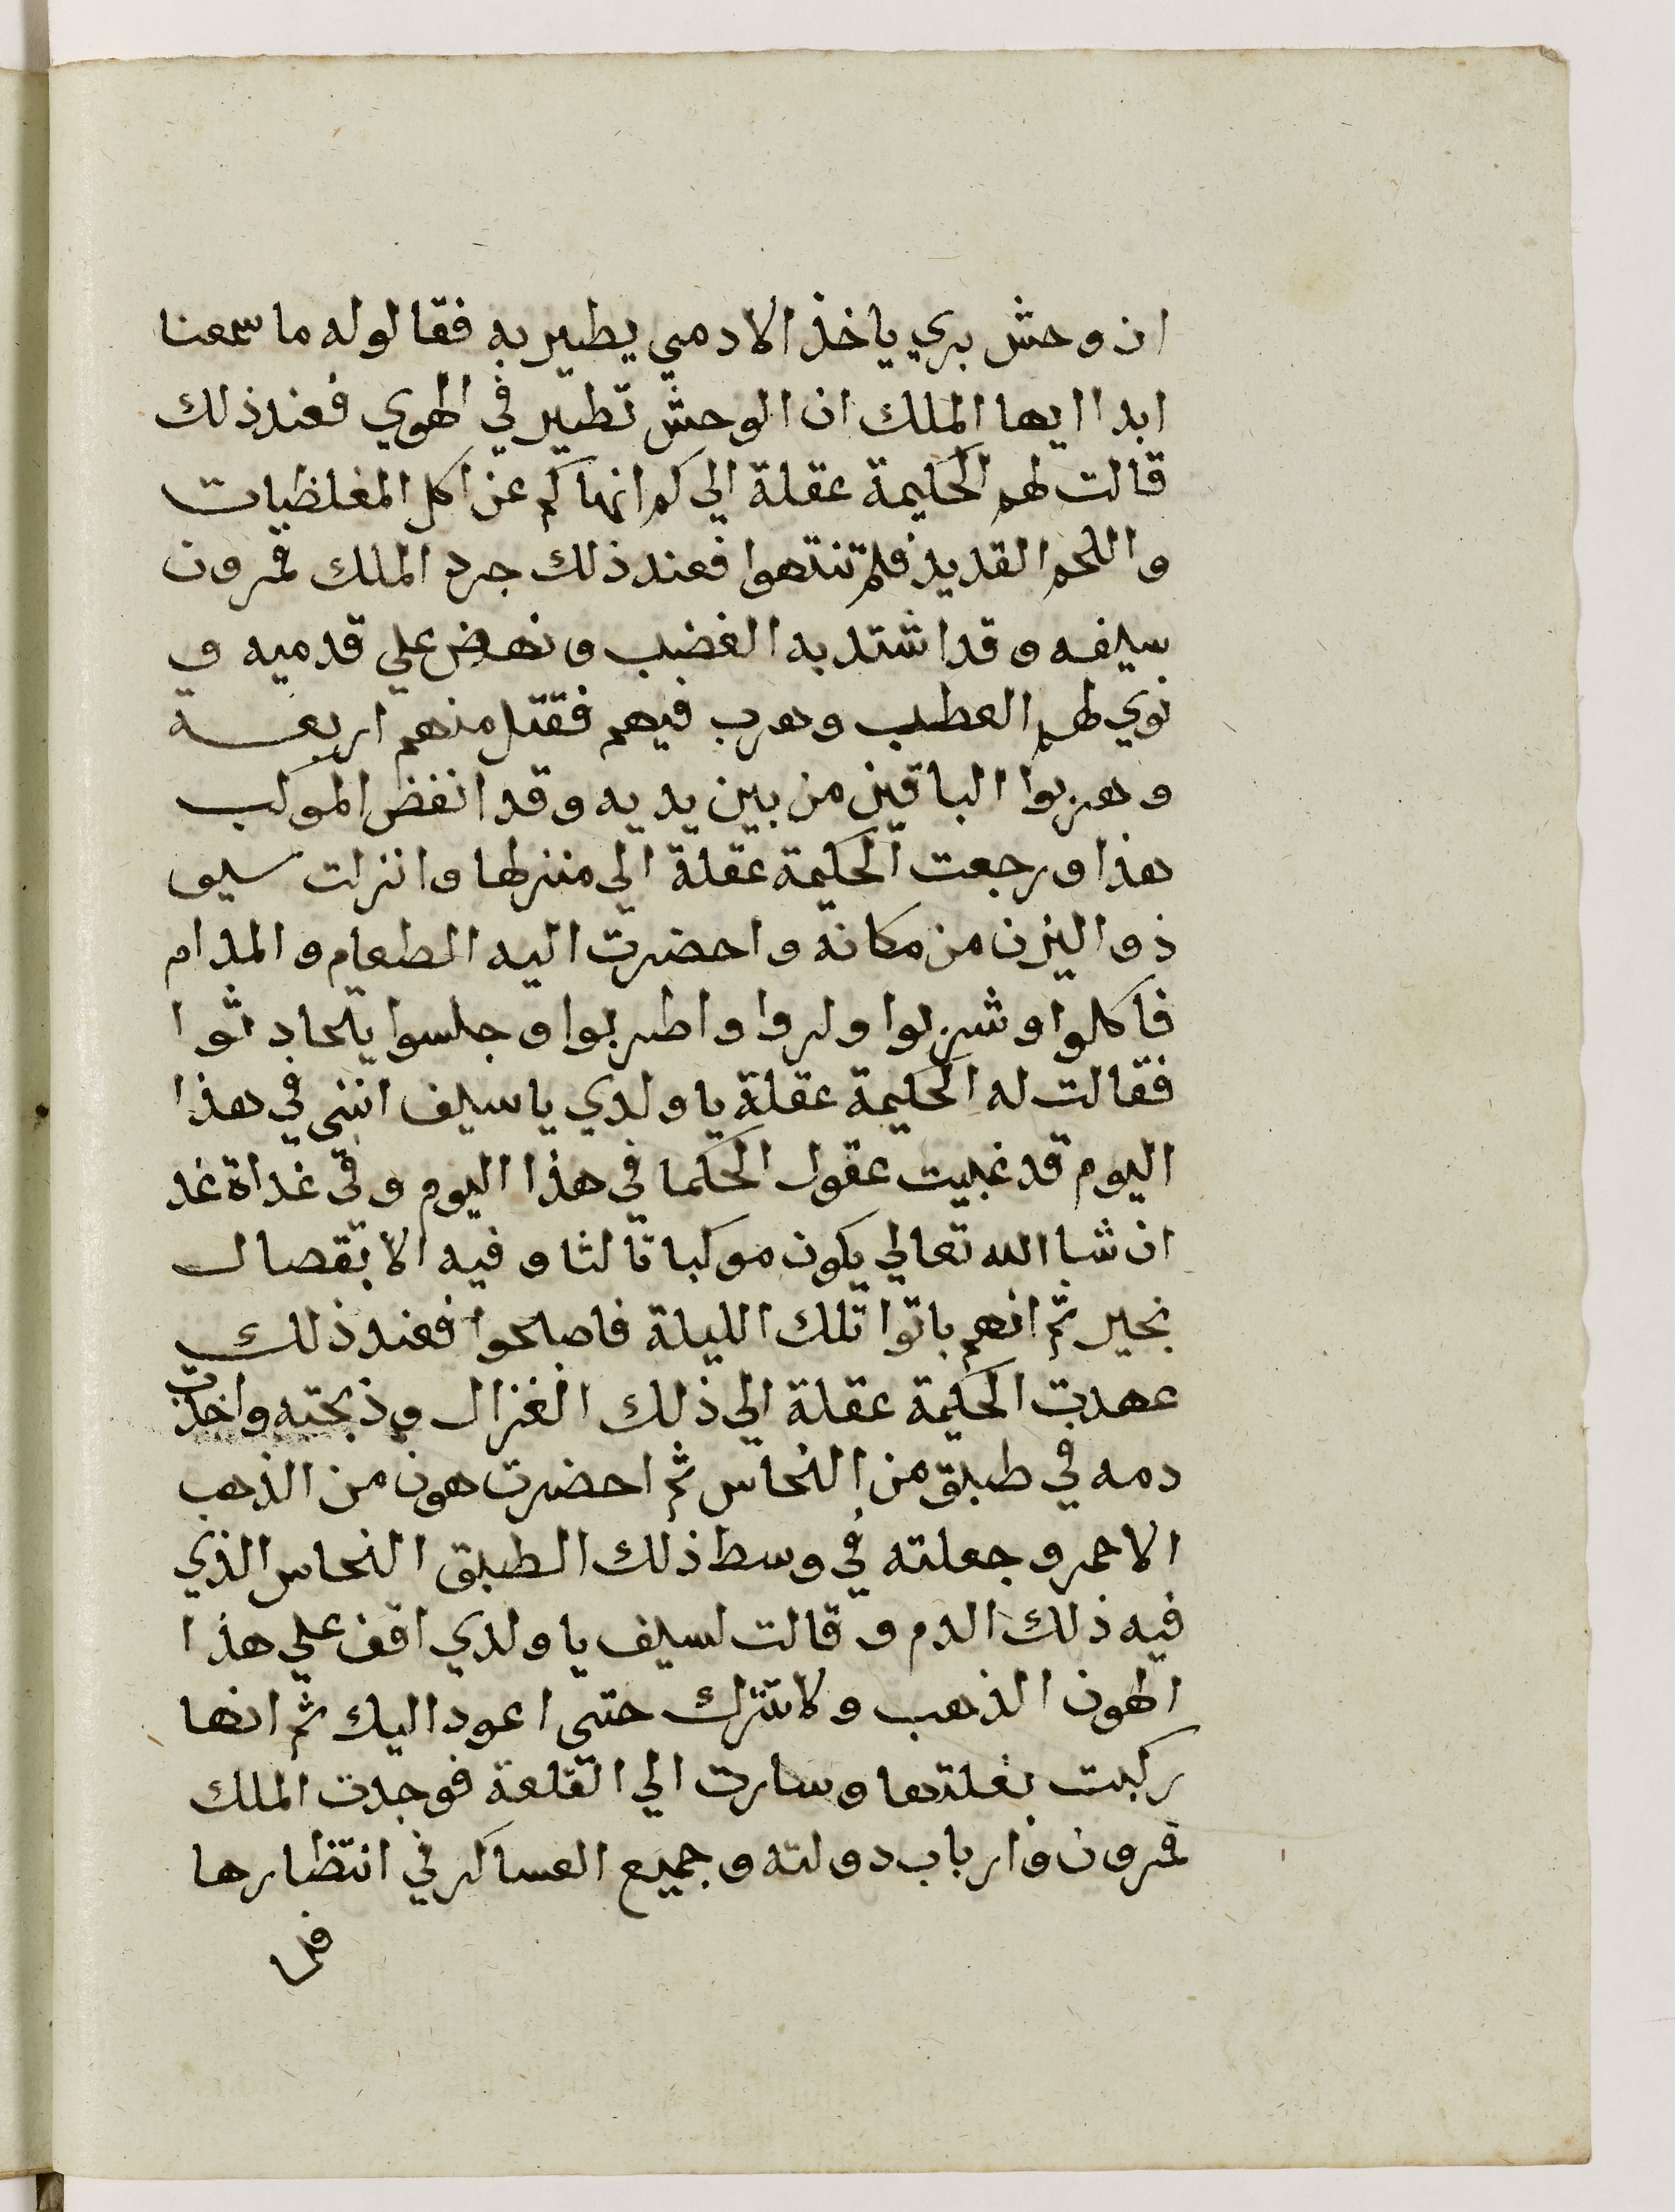 ان وحش بري ياخذ الادمي يطير به فقالوله ما سمعنا
ابدا ايها الملك ان الوحش تطير في الهوي فعند ذلك
قالت لهم الحكيمة عقلة الي كم انهاكم عن اكل المغلظيات
واللحم القديد فلم تنتهوا فعند ذلك جرد الملك قمرون
سيفه وقد اشتد به الغضب ونهض علي قدميه و
نوي لهم العطب وضرب فيهم فقتل منهم اربعة
وهربوا الباقين من بين يديه وقد انفض الموكب
هذا ورجعت الحكيمة عقلة الي منزلها وانزلت سيف
ذو اليزن من مكانه واحضرت اليه الطعام والمدام
فاكلوا وشربوا ولدوا واطربوا وجلسوا يتحادثوا
فقالت له الحكيمة عقلة يا ولدي يا سيف انني في هذا
اليوم قد غيبت عقول الحكما في هذا اليوم وفي غداة غد
ان شا الله تعالي يكون موكبا تالثا وفيه الانفصال
بخير ثم انهم باتوا تلك الليلة فاصبحوا فعند ذلك
عهدت الحكيمة عقلة الي ذلك الغزال وذبحته واخذت
دمه في طبق من النحاس ثم احضرت هون من الذهب
الاحمر وجعلته في وسط ذلك الطبق النحاس الذي
فيه ذلك الدم وقالت لسيف يا ولدي اقف علي هذا
الهون الذهب ولا تنزل حتي اعود اليك ثم انها
ركبت بغلتها وسارت الي القلعة فوجدت الملك
قمرون وارباب دولته وجميع العساكر في انتظارها